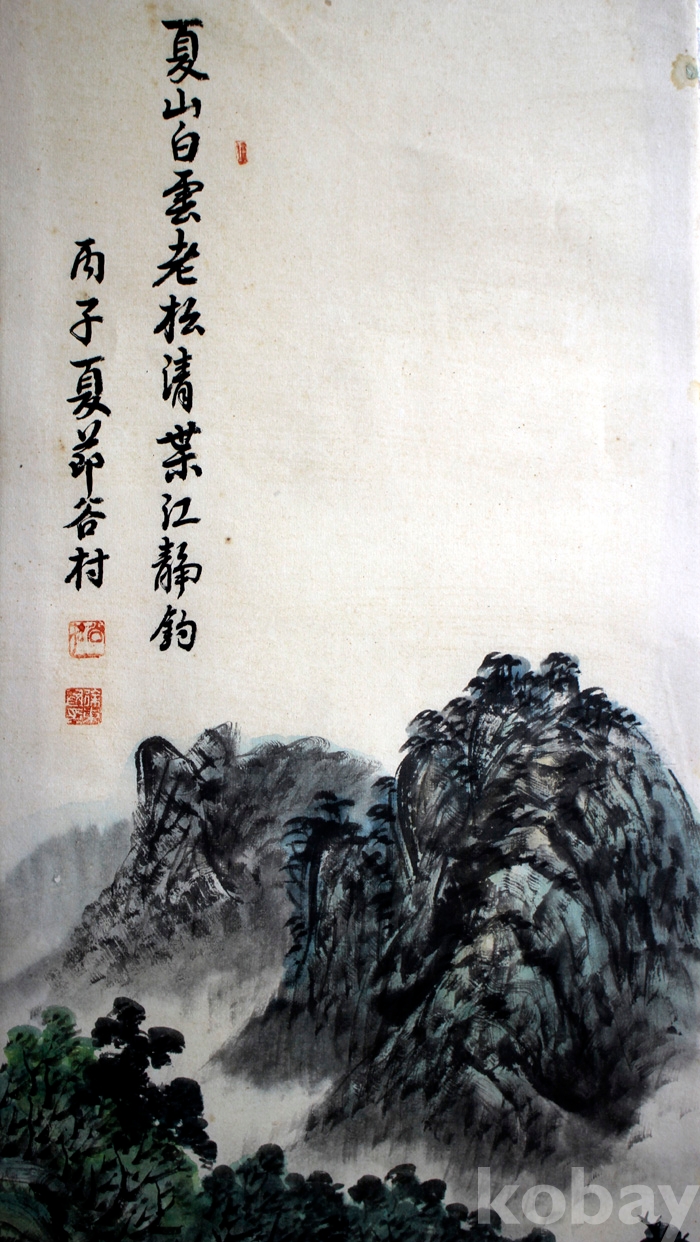 夏山白雲老松清葉江靜釣
丙子夏節谷村
kobay